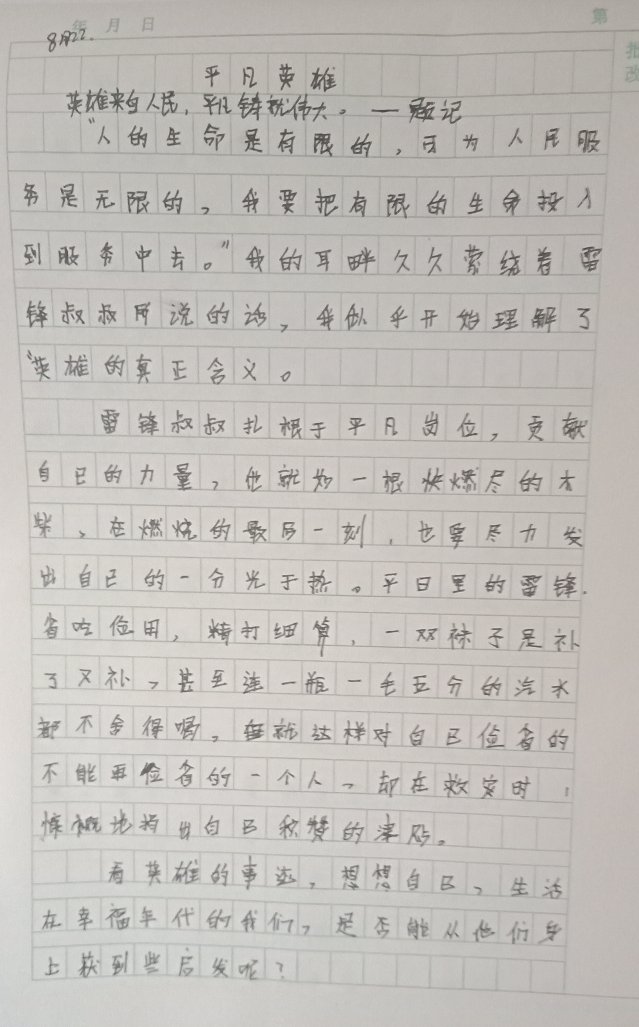 年 月 日
第
8月22.
批
改
平凡英雄
英雄来自人民，平凡铸就伟大。——题记
“人的生命是有限的，可为人民服
务是无限的，我要把有限的生命投入
到服务中去。”我的耳畔久久萦绕着雷
锋叔叔所说的话，我似乎开始理解了
“英雄的真正含义。
雷锋叔叔扎根于平凡岗位，贡献
自己的力量，他就如一根快燃尽的木
柴，在燃烧的最后一刻，也要尽力发
出自己的一分光于热。平日里的雷锋.
省吃俭用，精打细算，一双袜子是补
了又补，甚至连一瓶一毛五分的汽水
都不舍得喝，但就这样对自己俭省的
不能再俭省的一个人，却在救灾时，
慷慨地捐出自己积攒的津贴。
看英雄的事迹，想想自己，生活
在幸福年代的我们，是否能从他们身
上获到些启发呢？